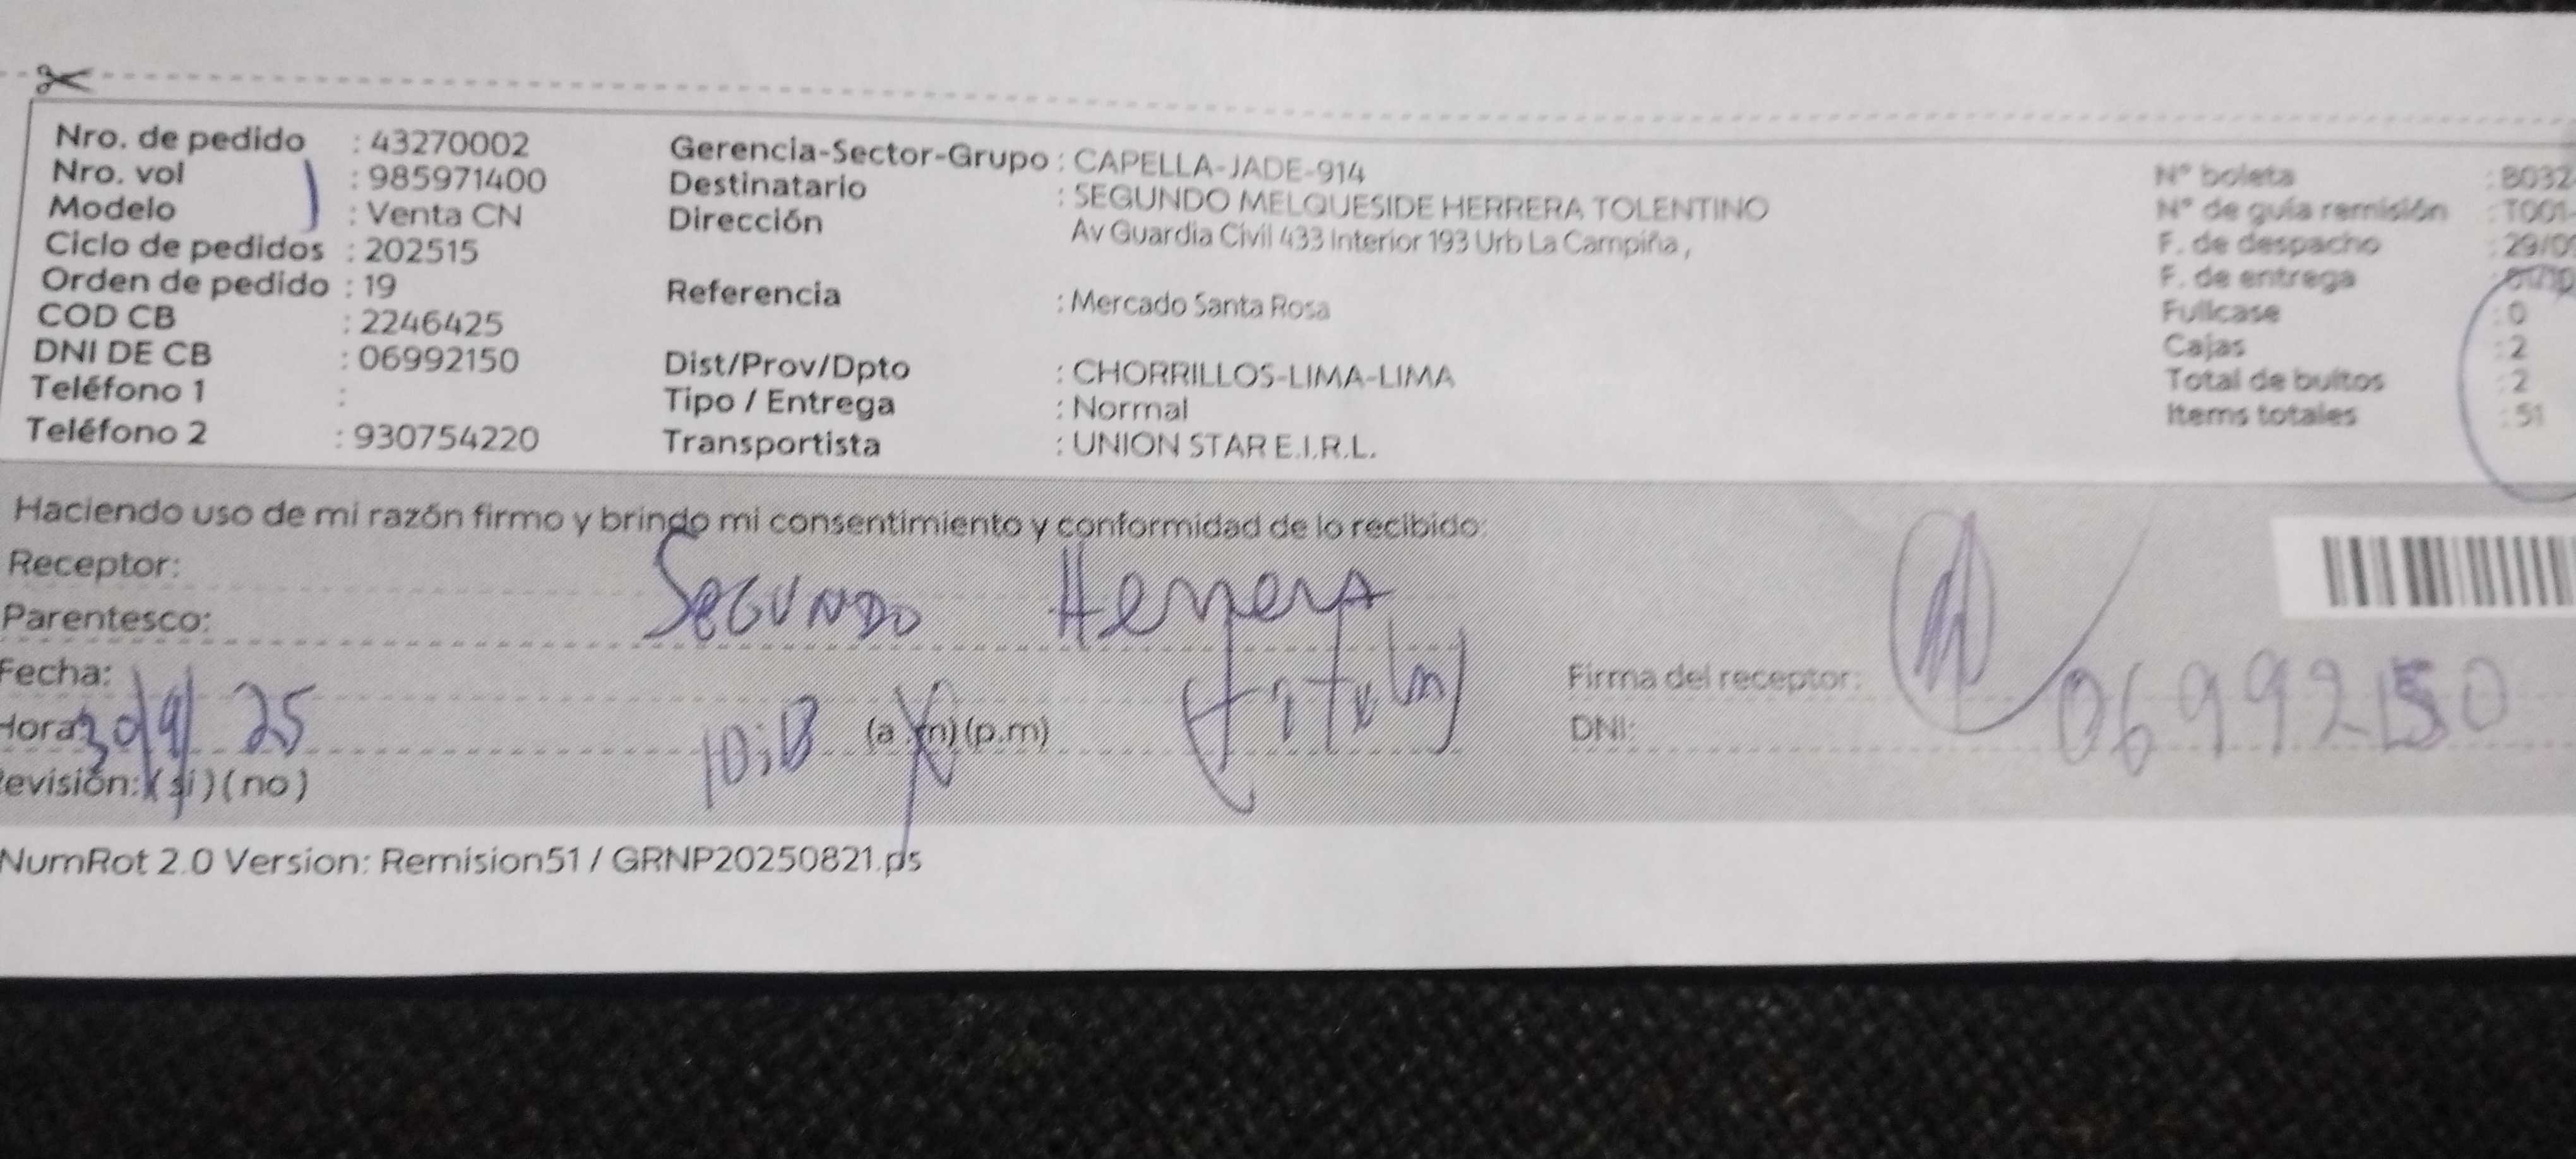 Nro. de pedido : 43270002
Nro. vol : 985971400
Modelo : Venta CN
Ciclo de pedidos : 202515
Orden de pedido : 19
COD CB : 2246425
DNI DE CB : 06992150
Teléfono 1 :
Teléfono 2 : 930754220
Gerencia-Sector-Grupo : CAPELLA-JADE-914
Destinatario : SEGUNDO MELQUESIDE HERRERA TOLENTINO
Dirección Av Guardia Civil 433 Interior 193 Urb La Campiña ,
Referencia : Mercado Santa Rosa
Dist/Prov/Dpto : CHORRILLOS-LIMA-LIMA
Tipo / Entrega : Normal
Transportista : UNION STAR E.I.R.L.
N° boleta : B032
N° de guía remisión : T001-
F. de despacho : 29/0
F. de entrega :
Fullcase : 0
Cajas : 2
Total de bultos : 2
Items totales : 51
Haciendo uso de mi razón firmo y brindo mi consentimiento y conformidad de lo recibido:
Receptor: SEGUNDO Herrera
Parentesco: (Titular)
Fecha: 30/9/25
Hora: (a.m)(p.m)
Revisión: (si) (no)
Firma del receptor:
DNI: 06992150
NumRot 2.0 Version: Remision51 / GRNP20250821.ps